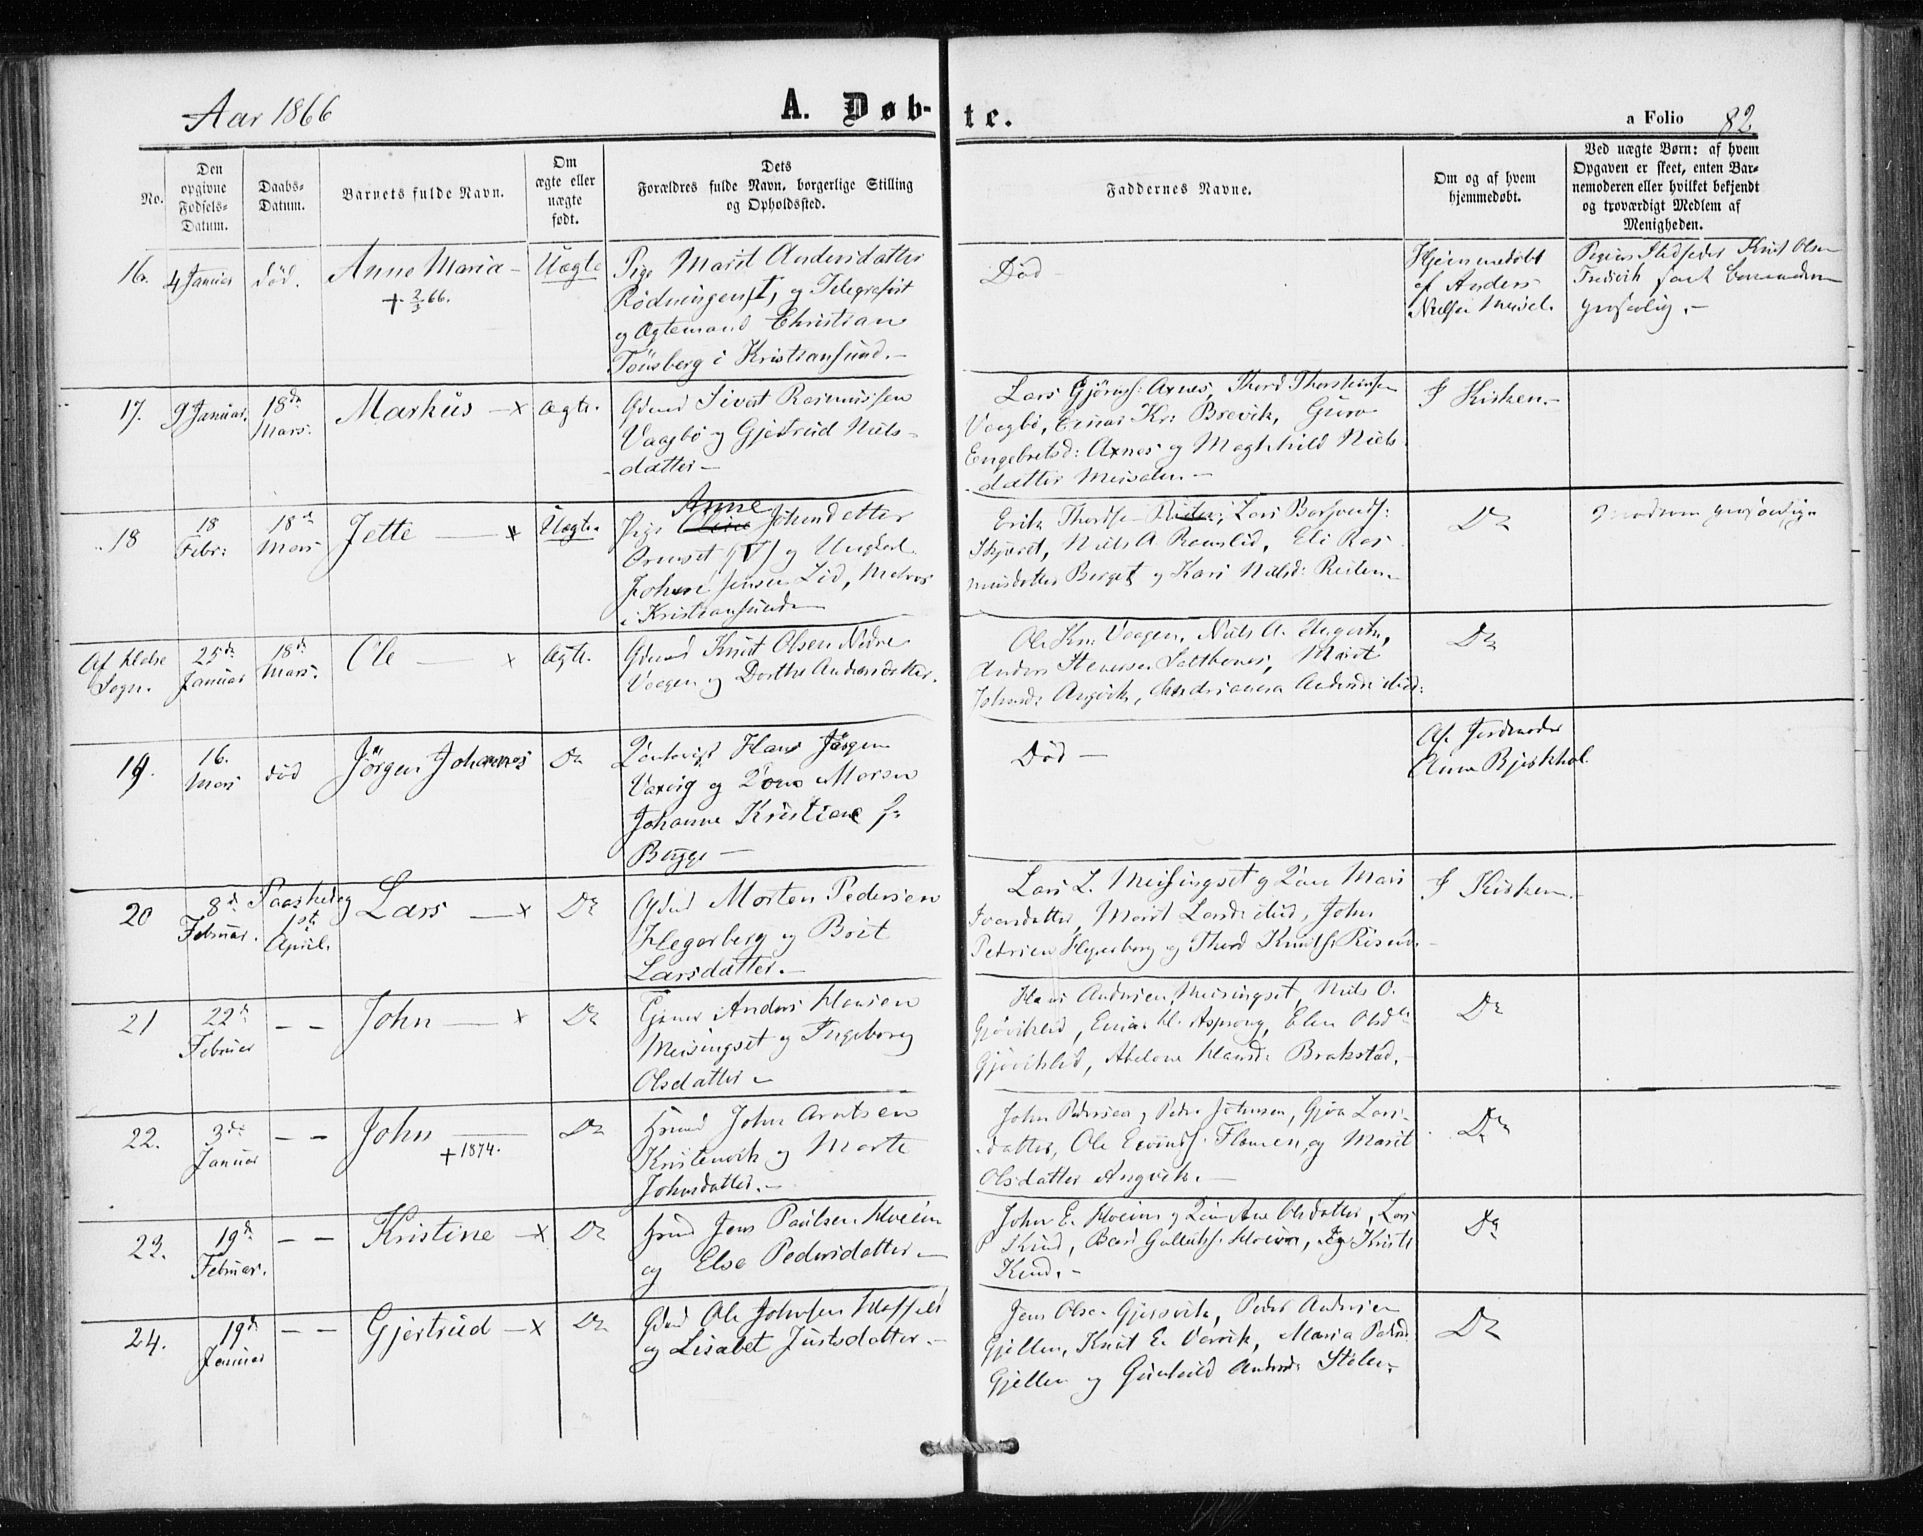 Aar 1866
A. Døb-te.
a Folio 82
No.
Den opgivne Fødsels-Datum.
Daabs-Datum.
Barnets fulde Navn.
Om ægte eller uægte født.
Dets Forældres fulde Navn, borgerlige Stilling og Opholdssted.
Faddernes Navne.
Om og af hvem hjemmedøbt.
Ved uægte Børn: af hvem Opgaven er skeet, enten Barnemoderen eller hvilket bekjendt og troværdigt Medlem af Menigheden.
16.
4 Januar
død.
Anne Maria -
+ 2/3 66.
Uægte
Pige Marit Andersdatter
Rødningen, og Telegrafist
og Ægtemand Christian
Tönsberg i Kristiansund. -
Død -
Hjemmedøbt
af Anders
Nielsen Meisel.
Knut Olsen
Fredvik
17.
9 Januar.
18de
Mars.
Markus - x
Ægte.
Gdmd Sivert Rasmussen
Vaagbö og Gjertrud Niels-
datter -
Lars Gjörns: Axnes, Thord Thorstensen
Vaagbö, Einar Kr. Brevik, Guro
Engebretsd: Axnes og Maghild Niels
datter Meisalen. -
I Kirken. -
18
18
Febr:
18de
Mars
Jette - x
Uægte.
Anne
Pige Johnsdatter
og Ungkarl
Johan Jensen Lid,
i Kristiansund
Erik Thords Reiten, Lars
Niels A. Ramslid, Eli Ras
musdatter Berget og Kari Nielsd: Reiten. -
Do
Af Kleive
Sogn.
25de
Januar
18de
Mars.
Ole - x
Ægte.
Gdmd Knut Olsen Nedre
Vaagen og Dorthe Andersdatter.
Ole Kn: Vaagen, Niels A.
Anders Salthones, Marit
Johnsd: Angvik,
Do
19.
16.
Mars
død
Jörgen Johannes
Do
Hans Jörgen
Vaxvig og Kone Maren
Johanne Kristiane f.
Bugge -
Død -
Af Jordmoder
Anne Bjerkhol
20
8de
Februar.
Paaskedag
1st
April.
Lars - x
Do
Gdmd Morten Pedersen
Hegerberg og Brit
Larsdatter. -
Lars L. Meisingset og Kone Mari
Iversdatter, Marit Larsd: ibid, John
Pedersen Hegerberg og Thord Knuts:
I Kirken. -
21
22de
Februar
- -
John - x
Do
Anders Hansen
Meisingset og Ingeborg
Olsdatter -
Hans Andersen Meisingset, Niels O.
Gjövikslid, Einar H. Asprong, Elen Olsdtr
Gjövikslid, Abelone Hansd: Brakstad. -
Do
22.
3de
Januar
- -
John
+ 1874.
Do
Hmd John Arntsen
Kristenvik og Marte
Johnsdatter. -
John Pedersen, Peder Johnsen, Gjöa Lars
datter, Ole Flemmen, og Marit
Olsdatter Angvik. -
Do
23.
19de
Februar.
- -
Kristine - x
Do
Hmd Jens Paulsen Hoeim
og Else Pedersdatter -
John E. Hoeim og Kone Ane Olsdatter, Lars
Hoeim, Kirsti
Do
24.
19de
Januar
- -
Gjertrud - x
Do
Gdmd Ole Johnsen
og Lisabet Justsdatter. -
Jens Olsen Gjersvik, Peder Andersen
Gjellen, Knut E. Maria Pedersd:
Gjellen og Gunhild Andersd: Stölen.
Do